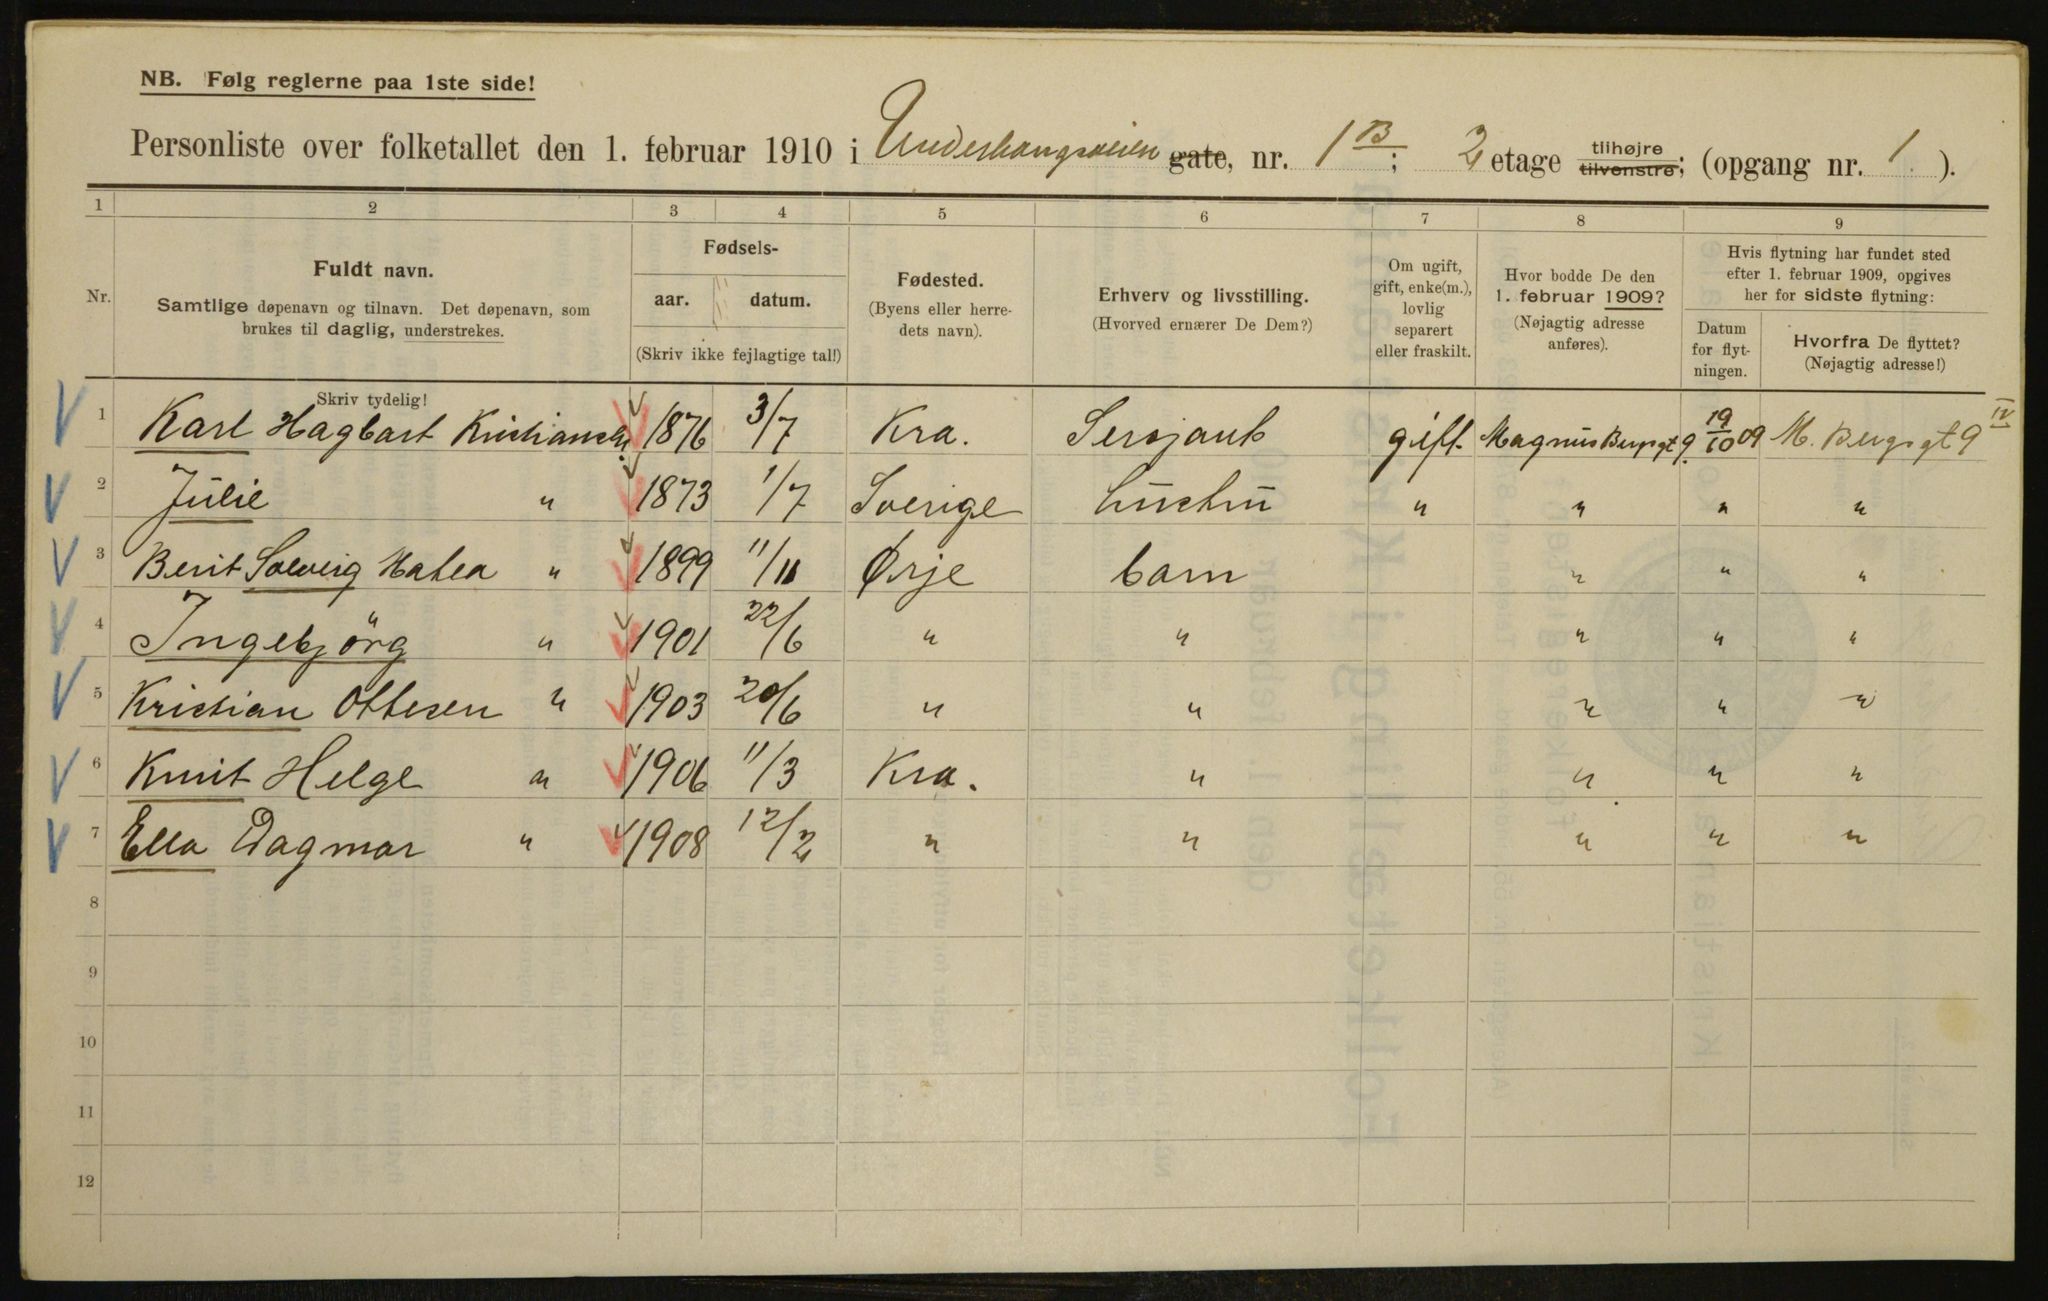 NB. Følg reglerne paa 1ste side!
Personliste over folketallet den 1. februar 1910 i Underhaugsveien gate, nr. 1B; 2 etage tilhøjre tilvenstre; (opgang nr. 1 ).
1 2 3 4 5 6 7 8 9
Nr.
Fuldt navn.
Samtlige døpenavn og tilnavn. Det døpenavn, som
brukes til daglig, understrekes.
Skriv tydelig!
Fødsels-
aar. datum.
(Skriv ikke fejlagtige tal!)
Fødested.
(Byens eller herre-
dets navn).
Erhverv og livsstilling.
(Hvorved ernærer De Dem?)
Om ugift,
gift, enke(m.),
lovlig
separert
eller fraskilt.
Hvor bodde De den
1. februar 1909?
(Nøjagtig adresse
anføres).
Hvis flytning har fundet sted
efter 1. februar 1909, opgives
her for sidste flytning:
Datum
for flyt-
ningen.
Hvorfra De flyttet?
(Nøjagtig adresse!)
1 Karl Hagbart Kristiansen 1876 3/7 Kra. Sersjant gift. Magnus Bergsgt 9. 19/10 09 M. Bergsgt 9 IV
2 Julie " 1873 1/7 Sverige hustru " " " "
3 Berit Solveig Hatlea " 1899 11/11 Ørje barn " " "
4 Ingebjörg " 1901 22/6 " " " " "
5 Kristian Ottesen " 1903 20/6 " " " " "
6 Knut Helge " 1906 11/3 Kra. " " " "
7 Ella Dagmar " 1908 12/2 " " " " "
8
9
10
11
12